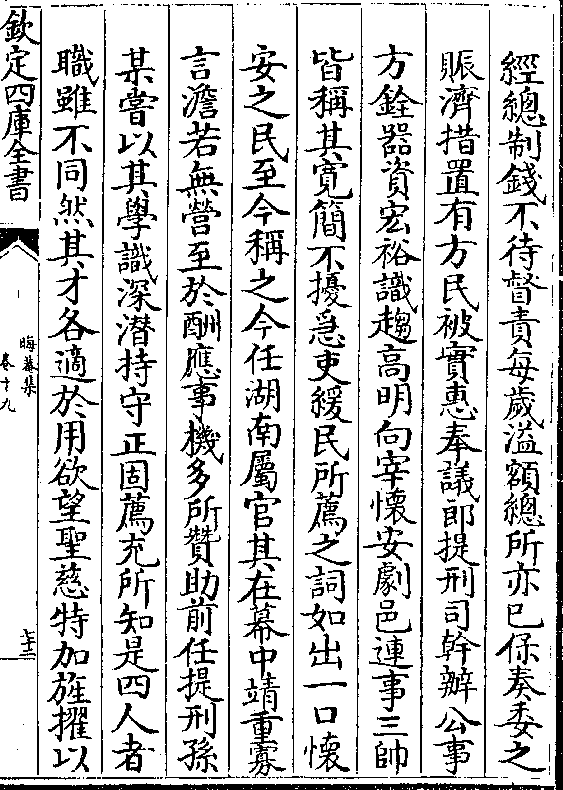 經總制錢不待督責每歲溢額總所亦已保奏委之
賑濟措置有方民被實惠奉議郎提刑司幹辦公事
方銓器資宏裕識趨高明向宰懷安劇邑連事三帥
皆稱其寬簡不擾急吏緩民所薦之詞如出一口懷
安之民至今稱之今任湖南屬官其在幕中靖重寡
言澹若無營至於酬應事機多所贊助前任提刑孫
某嘗以其學識深潛持守正固薦充所知是四人者
職雖不同然其才各適於用欲望聖慈特加旌擢以
欽定四庫全書
晦菴集
卷十九
七十三